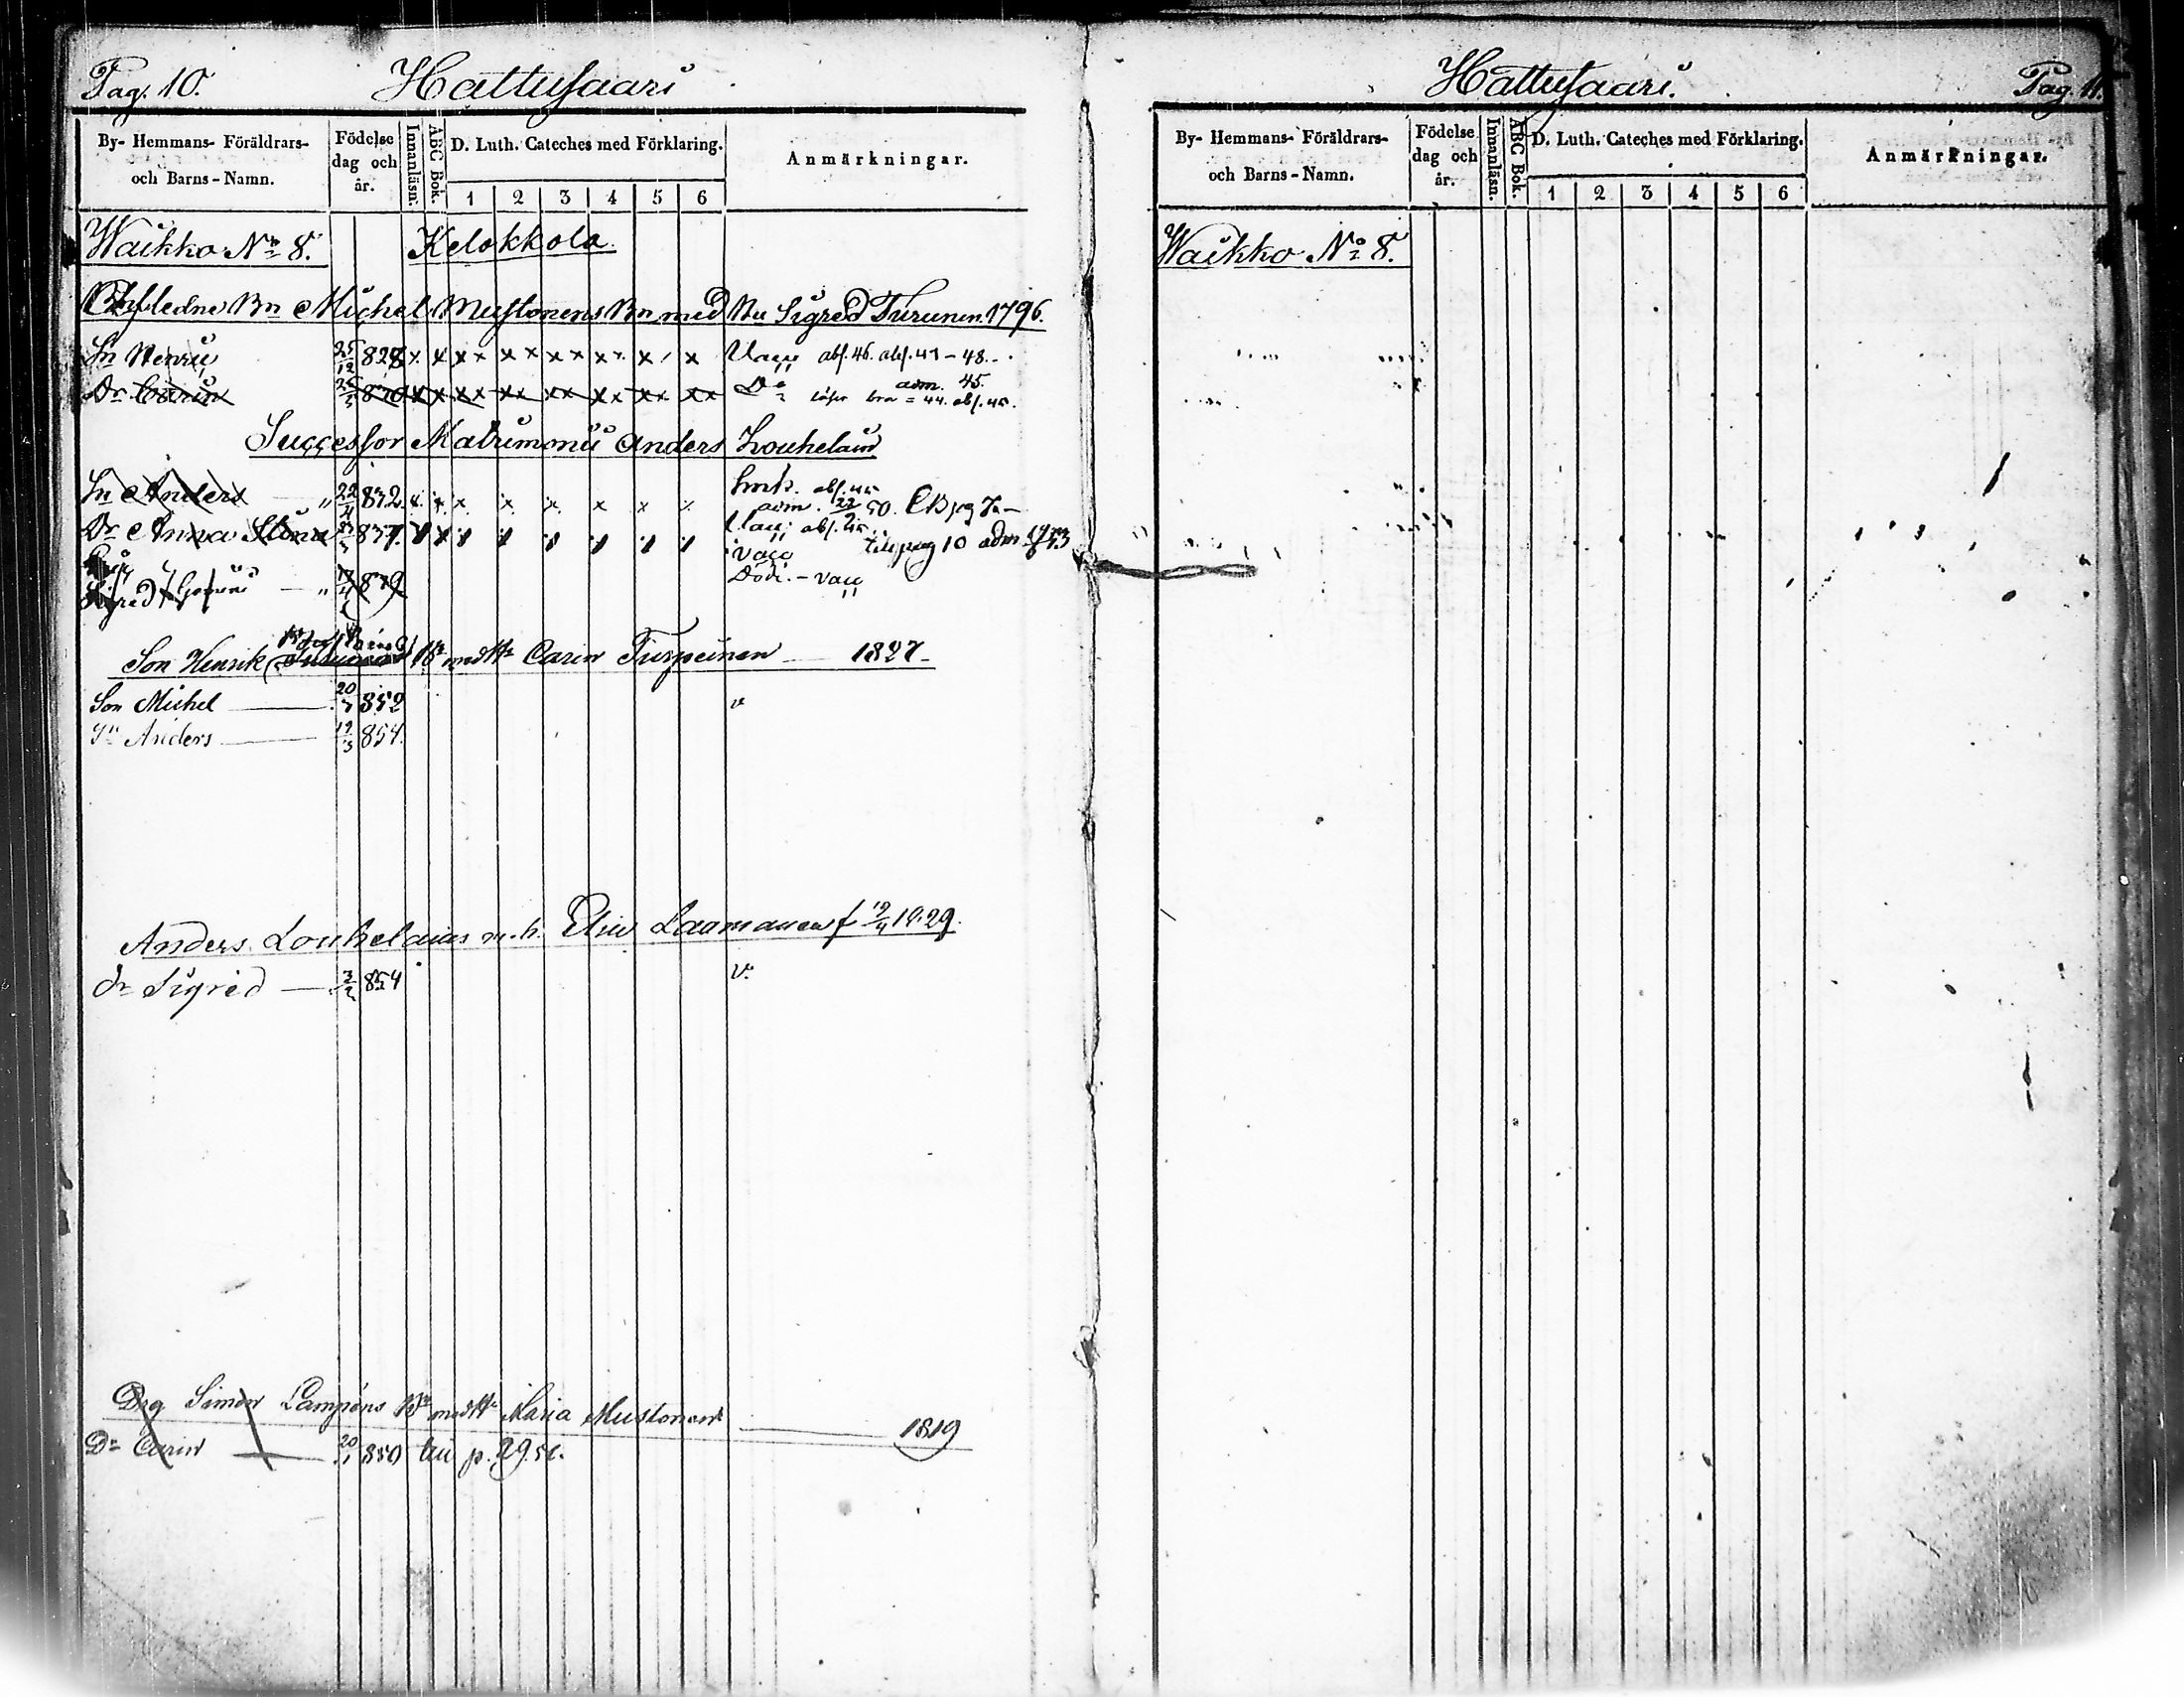 Pag. 10. Hattusaari
By- Hemmans- Föräldrars- och Barns-Namn. Födelse dag och år. Innanläsn. ABC Bok. D. Luth. Cateches med Förklaring. Anmärkningar.
1 2 3 4 5 6
Waikko No 8. Kelokkola
Michel Mustonens Bn med Hu Sigred Turunen. 1796.
Sn Henric 25/12 828 x x x x x x x x x x x x Vacc abs. 46. abs. 47-48.
Dr Carin x x x x x x x x x x x x x x Do adm. 45.
läser bra = 44. abs. 45.
Successor Matrimonii Anders Louhelain
Sn Anders " 22/4 832 x x x x x x x x abs. 45
adm. 50.
Dr Anna 837. abs. 45.
vacc till pag 10 adm.
Sigred " 839 Död. - vacc
Son Henrik Bn med Hu Carin Turpeinen 1827
Son Michel 20/5 852 v
Sn Anders 19/3 854.
Anders Louhelains m. h. Elin Laamanen f 12/4 1829.
Dr Sigred 3/2 854 v.
Drg Simon Lampins Bn med Hu Maria Mustonen 1819
Dr Carin 850 till p. 29.
Hattusaari. Pag. 11.
By- Hemmans- Föräldrars- och Barns-Namn. Födelse dag och år. Innanläsn. ABC Bok. D. Luth. Cateches med Förklaring. Anmärkningar.
1 2 3 4 5 6
Waikko No 8.